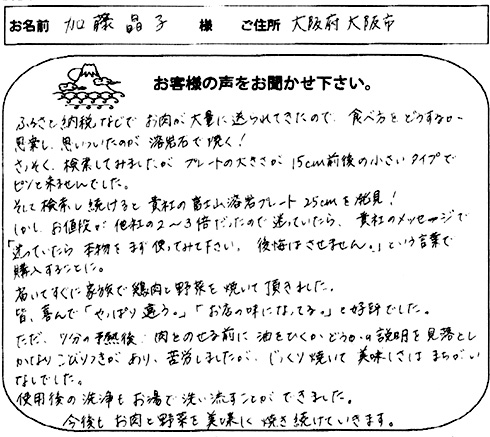 お名前 加藤晶子 様 ご住所 大阪府大阪市
お客様の声をお聞かせ下さい。
ふるさと納税などで お肉が大量に送られてきたので、食べ方をどうするか
思案し、思いついたのが 溶岩石で焼く!
さっそく、検索してみましたが プレートの大きさが 15cm前後の小さいタイプで
ピンと来ませんでした。
そして検索し続けると 貴社の富士山溶岩プレート 25cmを発見!
しかし、お値段が 他社の2〜3倍だったので 迷っていたら、貴社のメッセージで
「迷っていたら 本物をまず使ってみて下さい。後悔はさせません。」という言葉で
購入することに。
届いてすぐに家族で 鶏肉と野菜を焼いて頂きました。
皆、喜んで「やっぱり違う。」「お店の味になってる。」と好評でした。
ただ、7分の予熱後、肉とのせる前に 油をひくかどうかの説明を見落とし
かなりこびりつきがあり、苦労しましたが、じっくり焼いて 美味しさは まちがい
なしでした。
使用後の洗浄も お湯で洗い流すことができました。
今後も お肉と野菜を美味しく 焼き続けていきます。